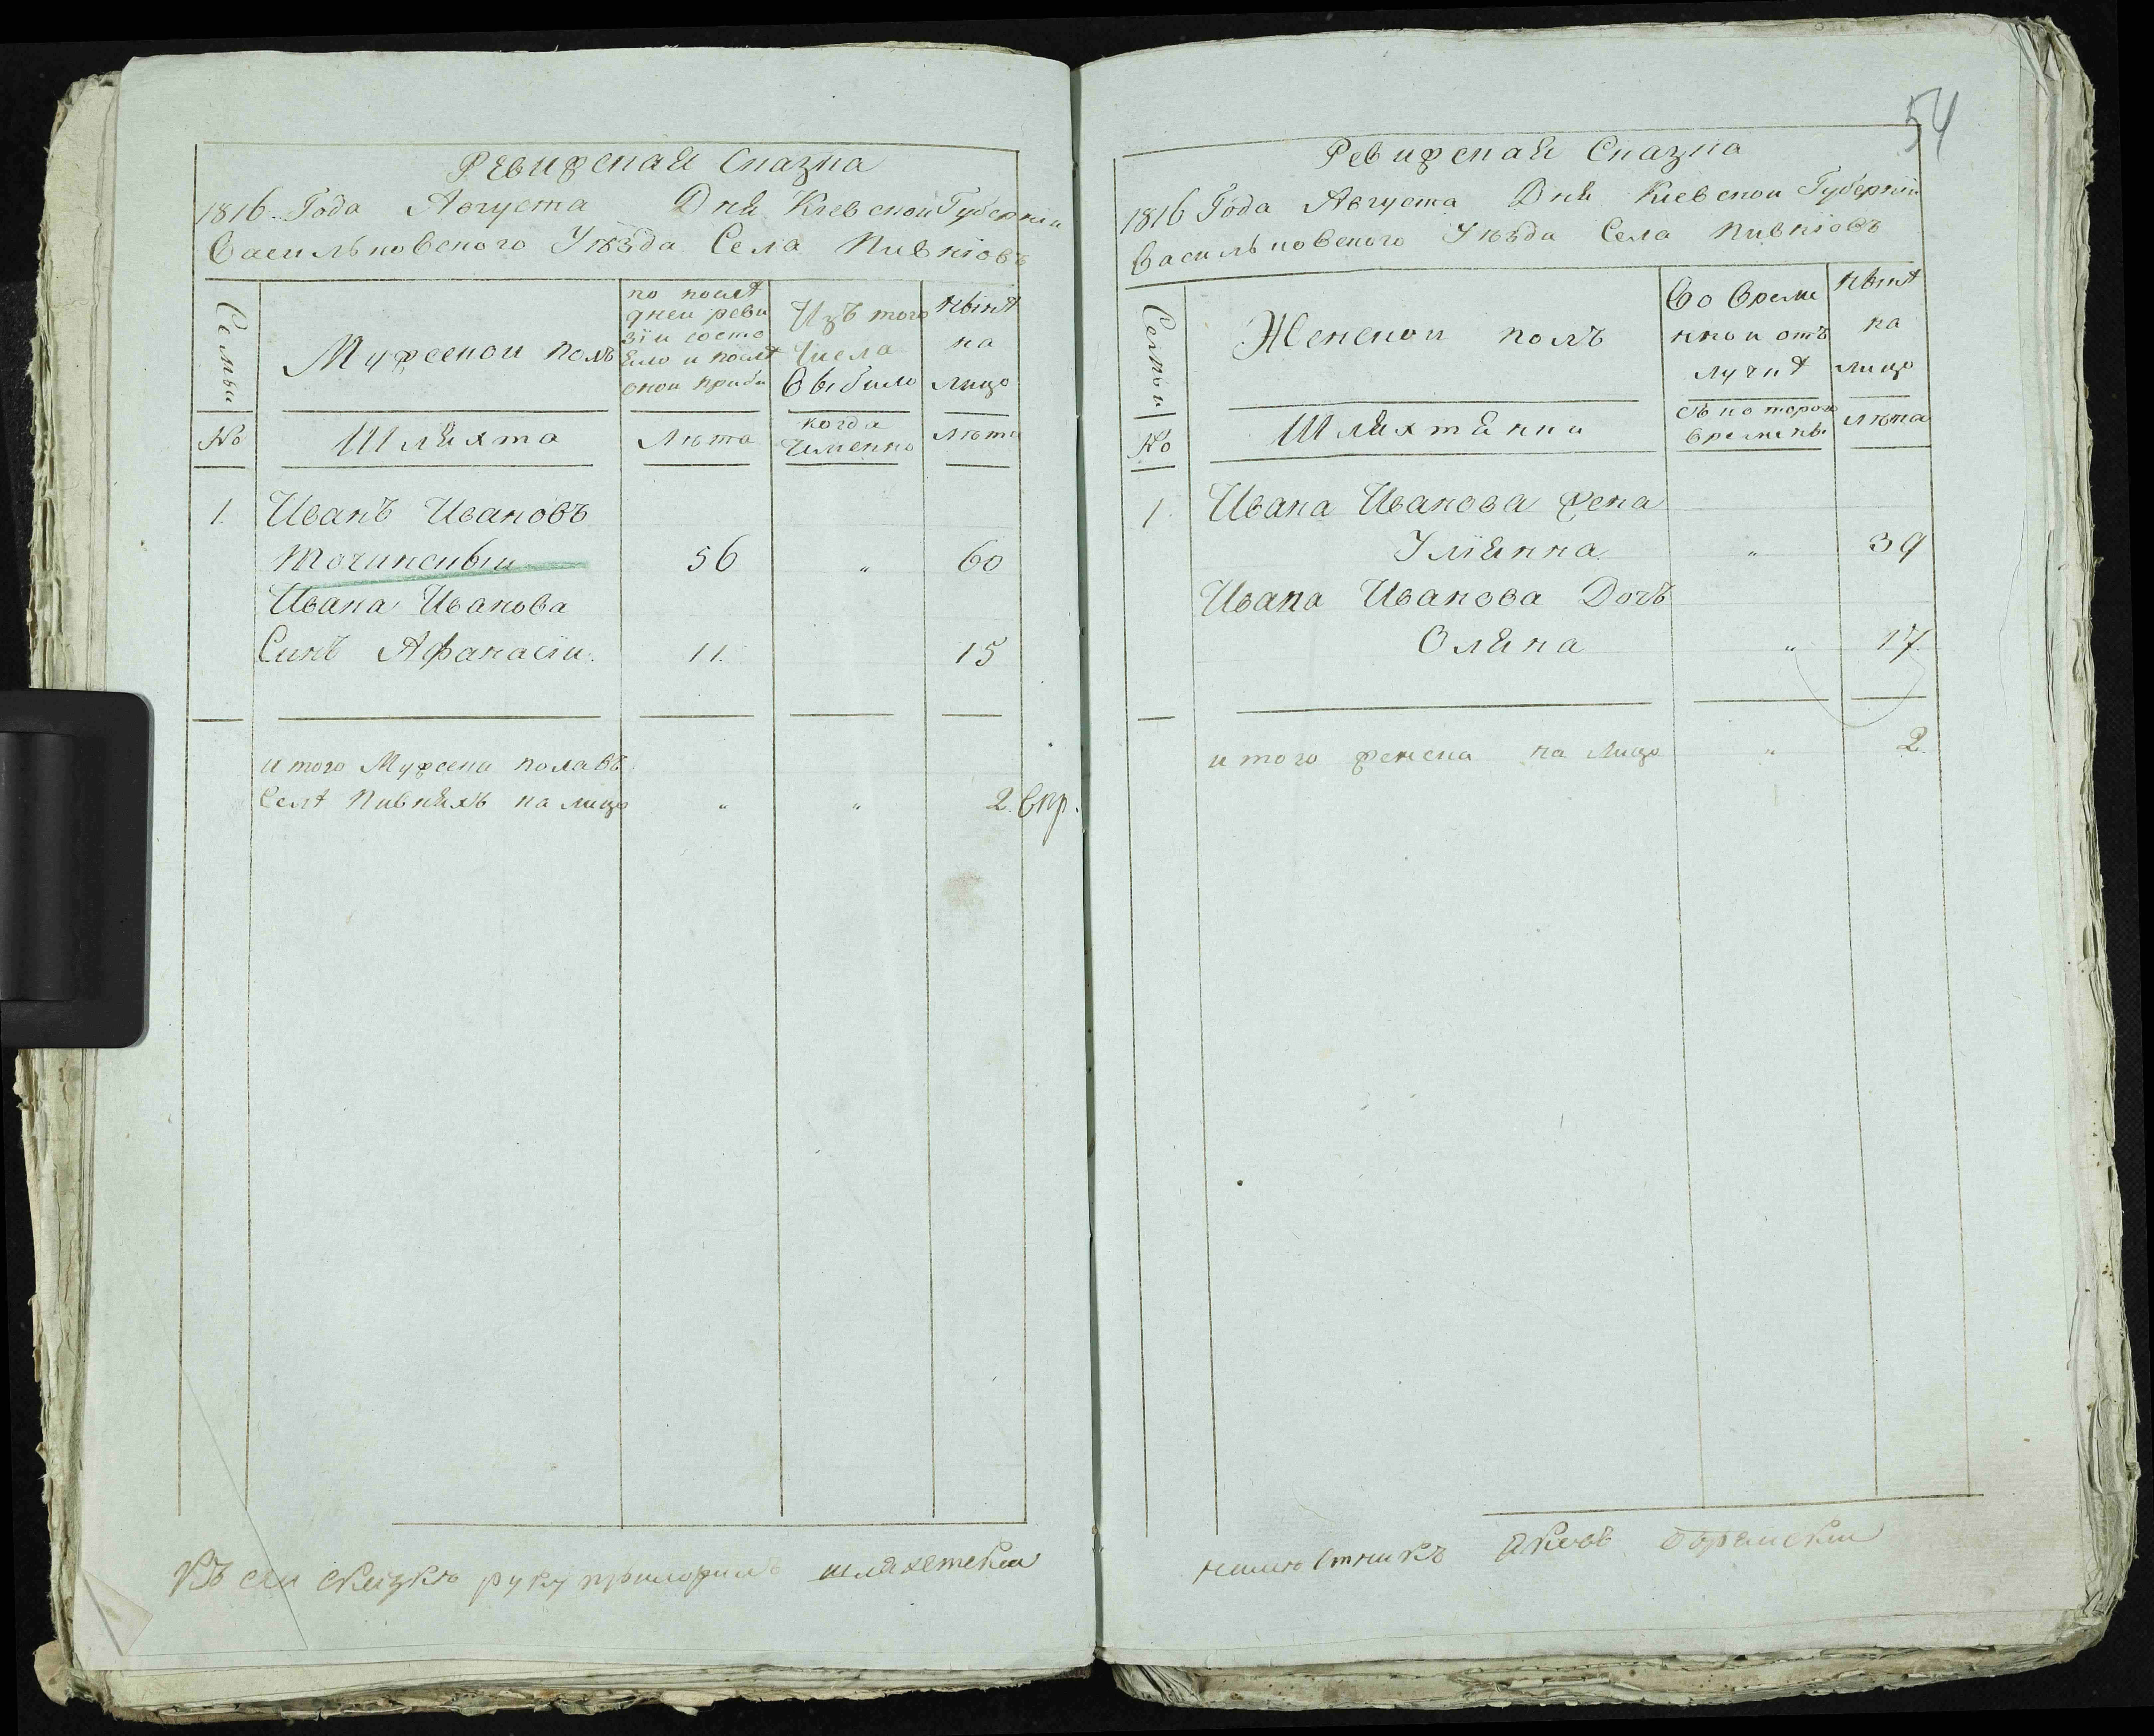 Ревизская Сказка
1816 Года Августа Дня Киевской Губернїи
Васильковского Уѣзда Села Пивнїовъ
Семьи
Мужеской полъ
по послѣ
дней реви
зїи состо
яло и послѣ
оной прибы
Изъ того
Числа
Выбило
нынѣ
на
лицо
№
Шляхта
Лѣта
когда
Именно
Лѣта
1. Иванъ Ивановъ
56 „ 60
Ивана Иванова
Синъ Афанасїи. 11. 15
итого Мужеска пола въ
Селѣ Пивняхъ на лицо „ „ 2.
Къ сей скаcкѣ руку приложилъ шляхетскїй
54
Ревизская Сказка
1816 Года Августа Дня Киевской Губернїи
Васильковского Уѣзда Села Пивнїовъ
Семьи
Женской полъ
Во Време
нной отъ
лучкѣ
нынѣ
на
лицо
№
Шляхтянки
съ которого
времены
лѣта
1. Ивана Иванова жена
Улїянна „ 39
Ивана Иванова Дочъ
Оляна „ 17.
итого женска на Лицо „ 2.
намѣстникъ Яковъ